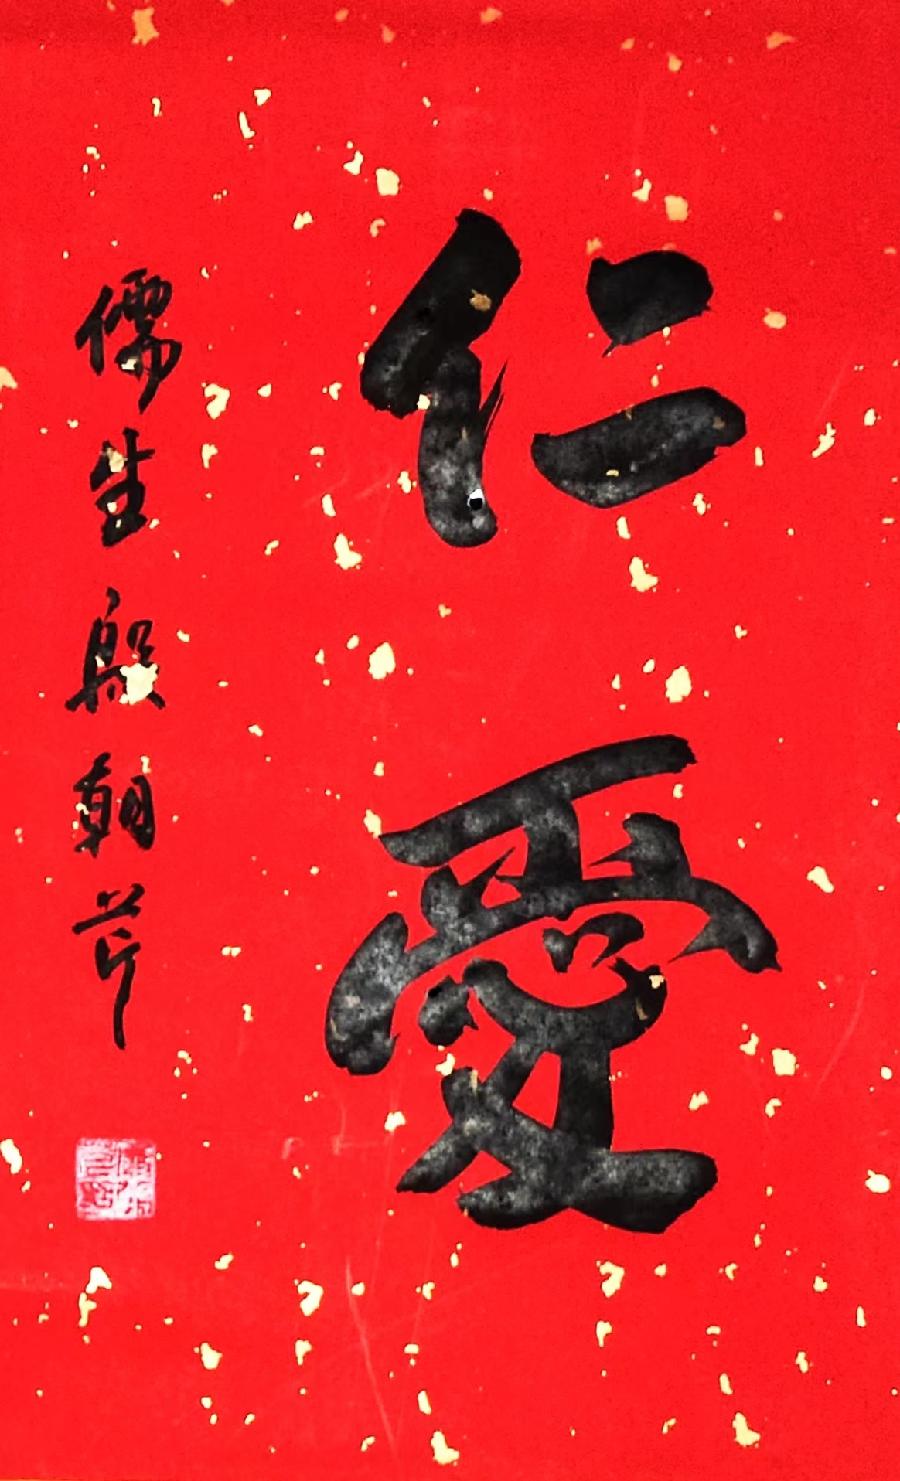 仁愛
儒生殷朝芹